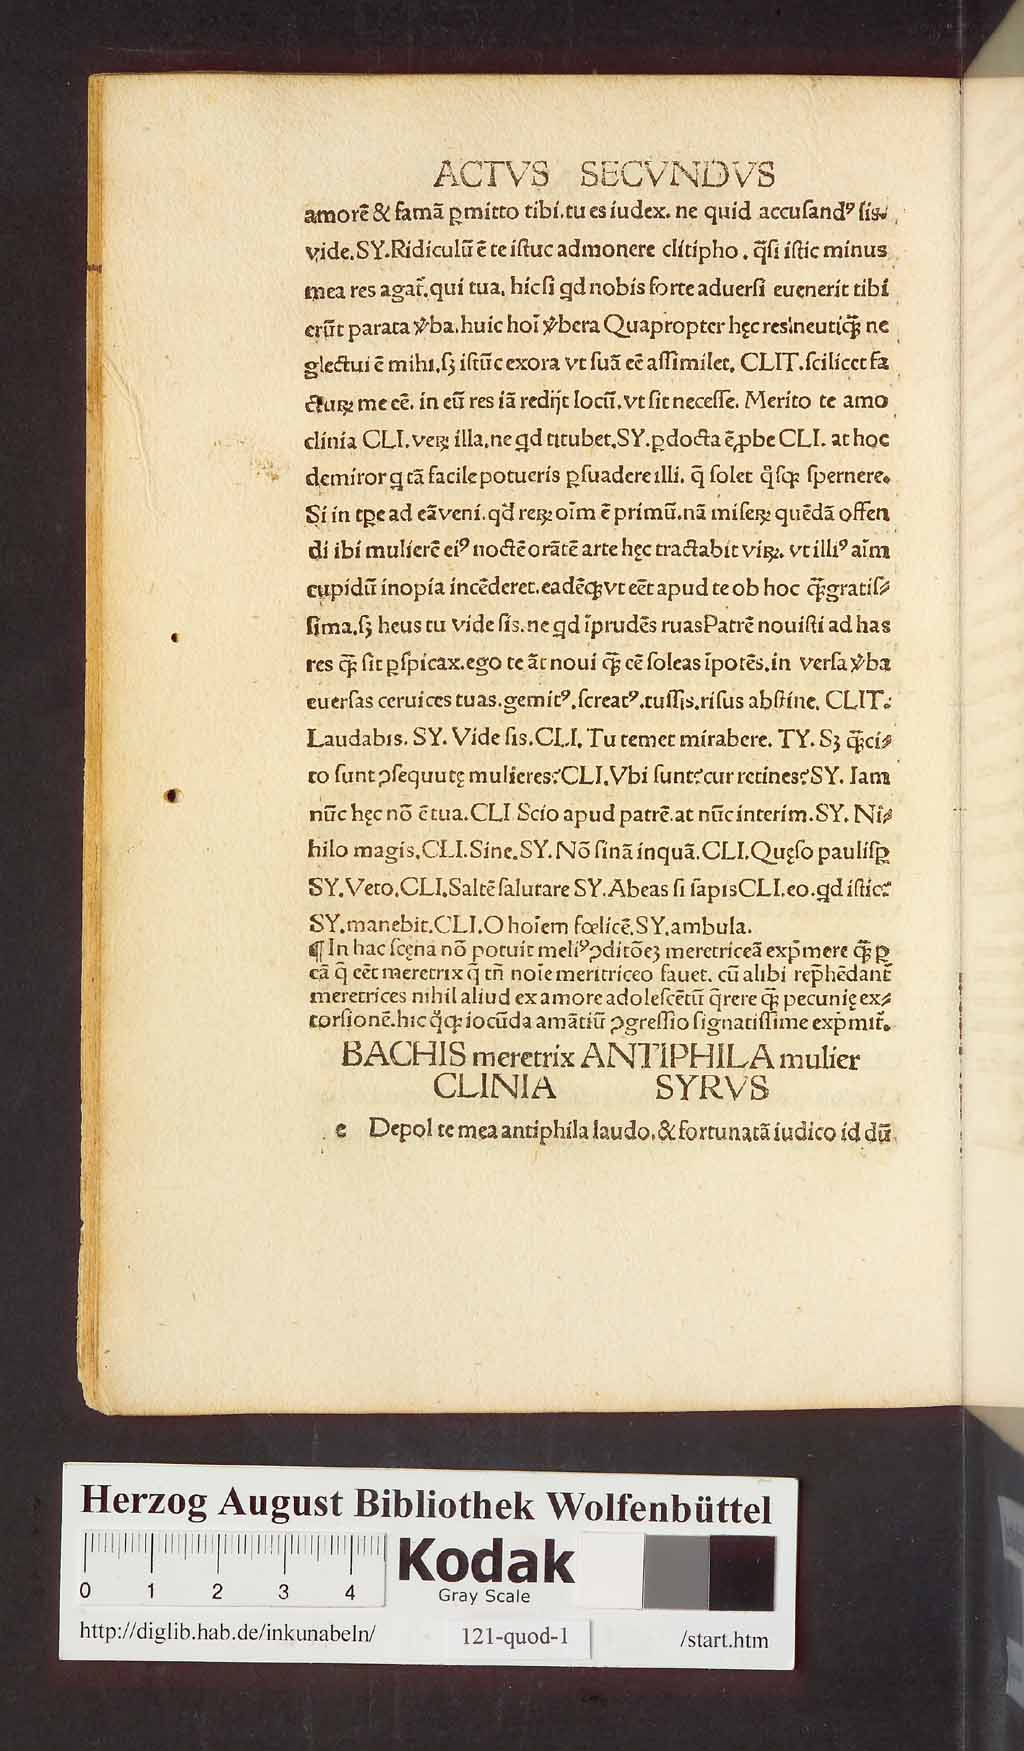 ACTVS SECVNDVS
amorē & famā ꝑmitto tibi. tu es iudex. ne quid accusandꝰ sis.
vide. SY. Ridiculū ē te istuc admonere clitipho. q̄si istic minus
mea res agat̄. qui tua. hic si qd nobis forte aduersi euenerit tibi
erūt parata v̄ba. huic hoī v̄bera Quapropter hęc res neutiq̄ȝ ne
glectui ē mihi. sȝ istūc exora vt suā eē assimilet. CLIT. scilicet fa
ctuꝝ me eē. in eū res iā redijt locū. vt sit necesse. Merito te amo
clinia CLI. veꝝ illa. ne qd titubet. SY. ꝑdocta ē ꝓbe CLI. at hoc
demiror q tā facile potueris ꝑsuadere illi. q̄ solet q̊sqȝ spernere.
Si in tꝑe ad eā veni. qd̄ reꝝ oīm ē primū. nā miseꝝ quēdā offen
di ibi mulierē eiꝰ noctē orātē arte hęc tractabit viꝝ. vt illiꝰ aīm
cupidū inopia incēderet. eadēqȝ vt eēt apud te ob hoc q̄ȝ gratis⸗
sima. sȝ heus tu vide sis. ne qd īprudēs ruas Patrē nouisti ad has
res q̄ȝ sit ꝑspicax. ego te āt noui q̄ȝ eē soleas īpotēs. in versa v̄ba
euersas ceruices tuas. gemitꝰ. screatꝰ. tussis. risus abstine. CLIT.
Laudabis. SY. Vide sis. CLI. Tu temet mirabere. TY. Sȝ q̄ȝ ci⸗
to sunt ꝯsequutę mulieres? CLI. Vbi sunt? cur retines? SY. Iam
nūc hęc nō ē tua. CLI Scio apud patrē. at nūc interim. SY. Ni⸗
hilo magis. CLI. Sine. SY. Nō sinā inquā. CLI. Quęso paulisꝑ
SY. Veto. CLI. Saltē salutare SY. Abeas si sapis CLI. eo. qd istic?
SY. manebit. CLI. O hoīem fœlicē. SY. ambula.
¶ In hac scęna nō potuit meliꝰ ꝯditōeȝ meretriceā exp̄mere q̄ȝ ꝑ
eā q̄ eēt meretrix q̄ tn̄ noīe meritriceo fauet. cū alibi rep̄hēdant̄
meretrices nihil aliud ex amore adolescētū q̄rere q̄ȝ pecunię ex⸗
torsionē. hic q̊qȝ iocūda amātiū ꝯgressio signatissime exp̄mit̄.
BACHIS meretrix ANTIPHILA mulier
CLINIA SYRVS
e Depol te mea antiphila laudo. & fortunatā iudico id dū
Herzog August Bibliothek Wolfenbüttel
0 1 2 3 4
Kodak
Gray Scale
http://diglib.hab.de/inkunabeln/ 121-quod-1 /start.htm